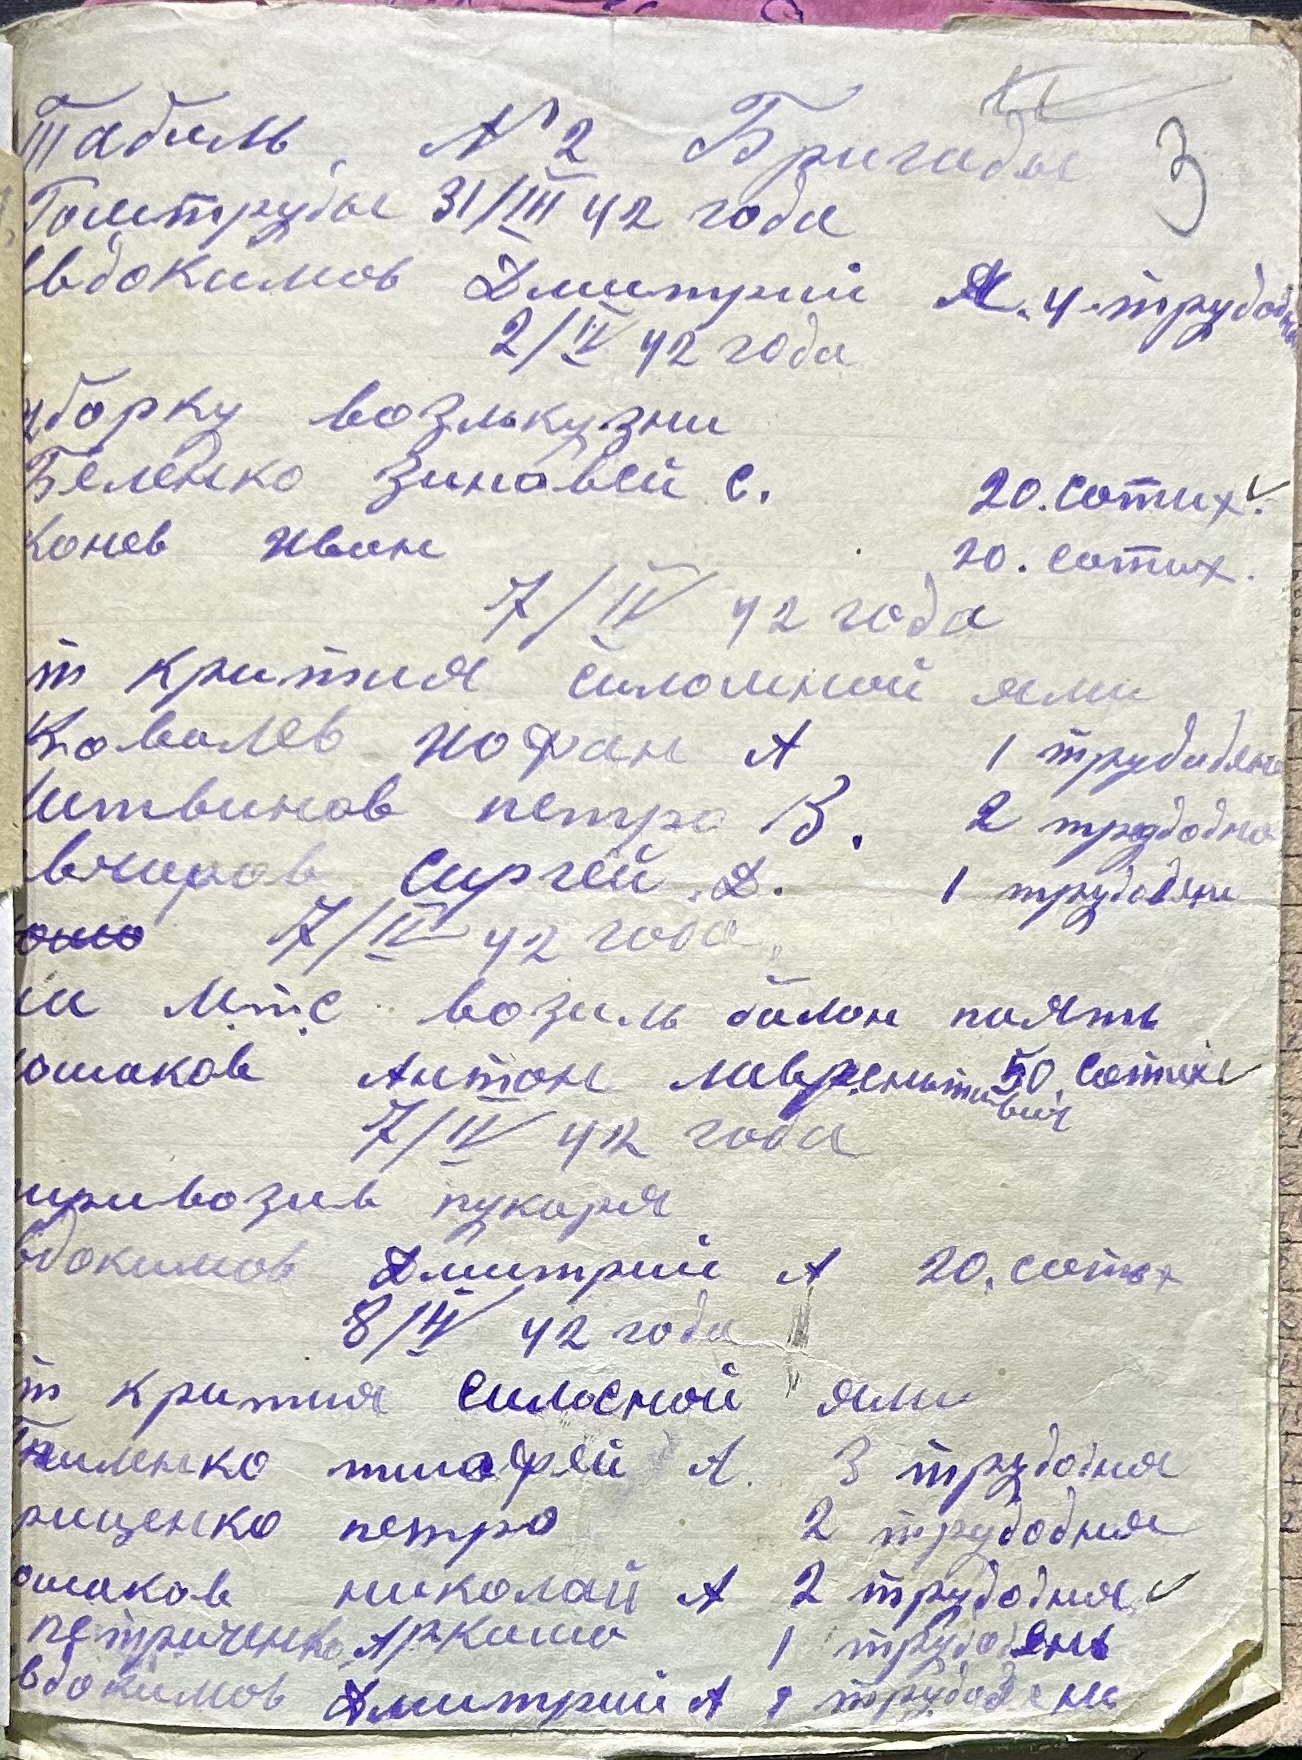 Табиль N 2 Бригады
3
31/III 42 года
вдокимов Дмитрий А. 4 трудодн
2/IV 42 года
уборку возлькузни
Беленко Зиновей С. 20. сотих.
Конев Иван 20. сотих.
7/IV 42 года
т крития силомной ями
Ковалев Иофан А 1 трудодянь
Литвинов петро В. 2 трудодня
Сиргей Д. 1 трудодянь
7/IV 42 года
М.т.С возиль балон
ошаков Антон лаврентьивич 50. сотих
7/IV 42 года
привозив пукаря
вдокимов Дмитрий А 20. сотих
8/IV 42 года
т крития силосной ями
тимофей А. 3 трудодня
рищенко петро 2 трудодня
ошаков николай А 2 трудодня
петриченко 1 трудодень
вдокимов Дмитрий А 1 трудодень